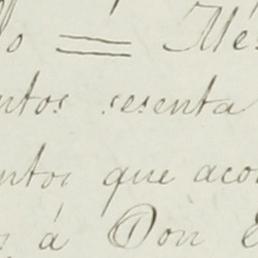 lo = Més
ntos sesenta
ntos que acor
s á Don E